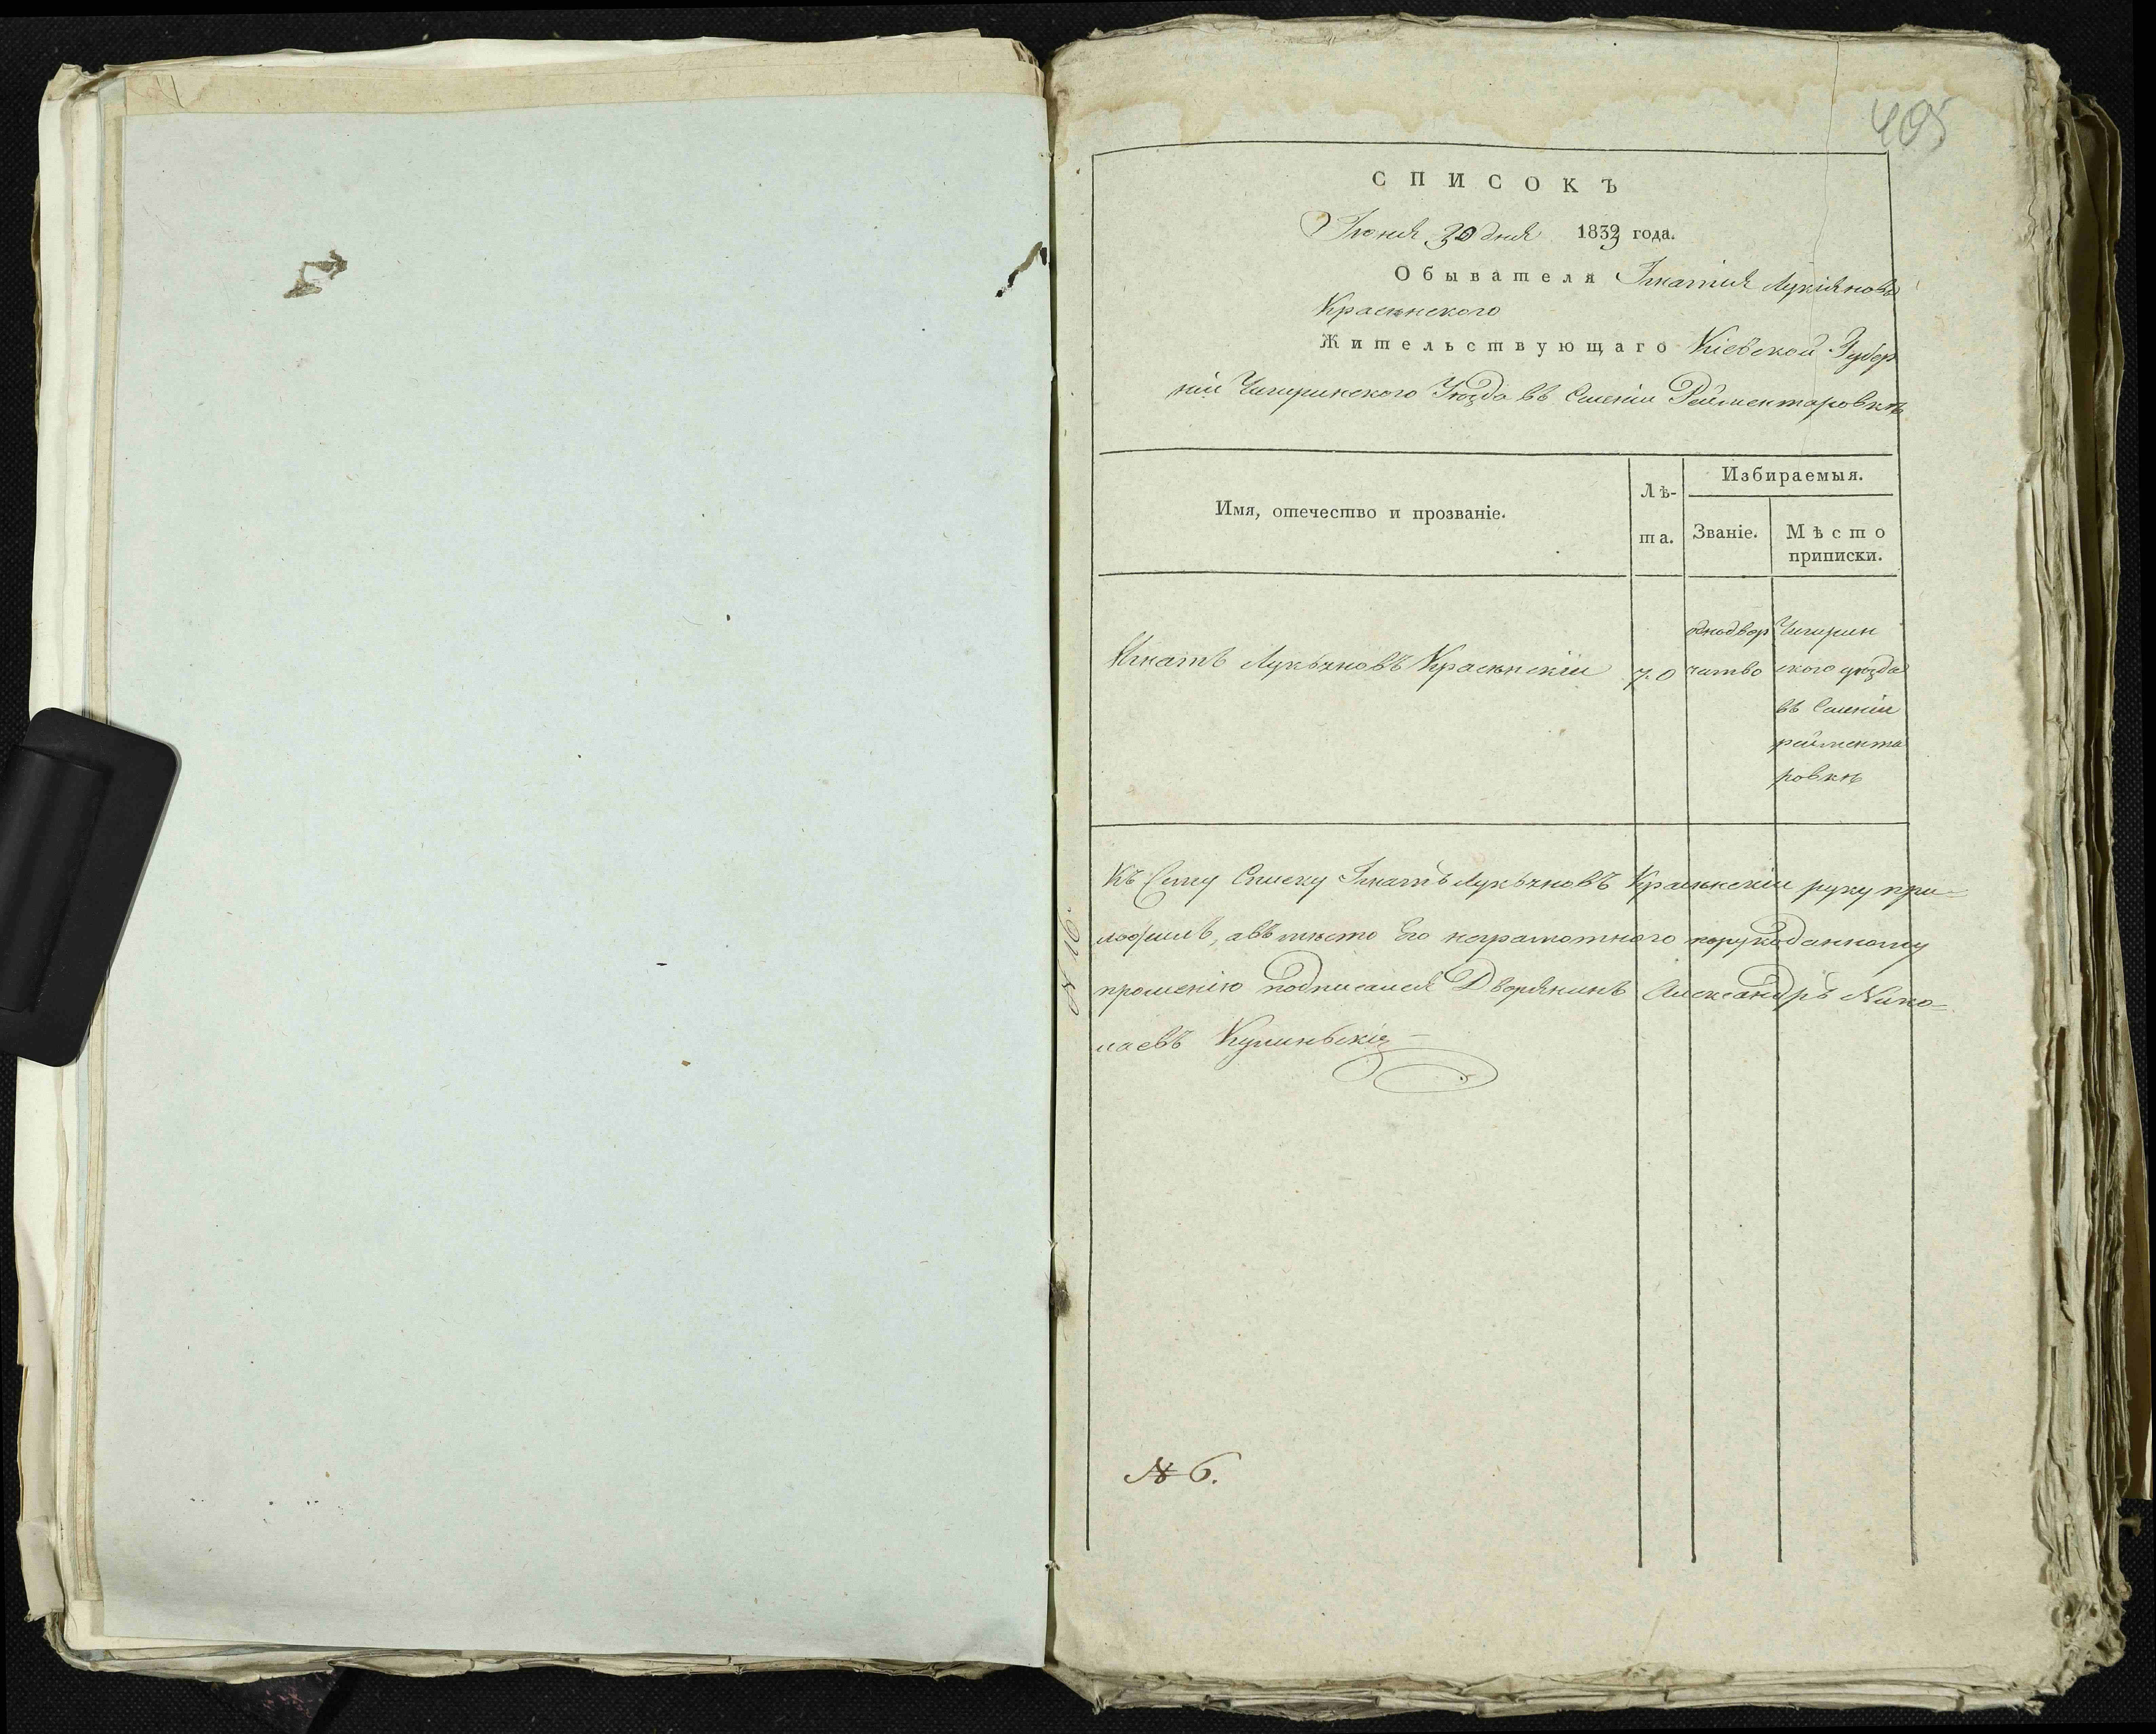 405
СПИСОКЪ
Іюня 30 дня 1832 года.
Обывателя Игнатія Лукіянова
Красенского
Жительствующаго Кіевской Губер
ніи Чигиринского Уѣзда въ Сиеніи Рейментаровкѣ
Имя, отечество и прозваніе.
Лѣ-
та.
Избираемыя.
Званіе.
Мѣсто
приписки.
Игнатъ Лукьяновъ Красенскіи 70 однодвор Чигирин
чатво ского уѣзда
въ Сиеніи
реймента
ровкѣ
Къ Сему Списку Игнатъ Лукьяновъ Красенскіи руку при-
ложилъ, авъ мѣсто Его неграмотного порукоданному
прошенію подписался Дворянинъ Александръ Нико-
лаевъ
№ 16.
№ 6.